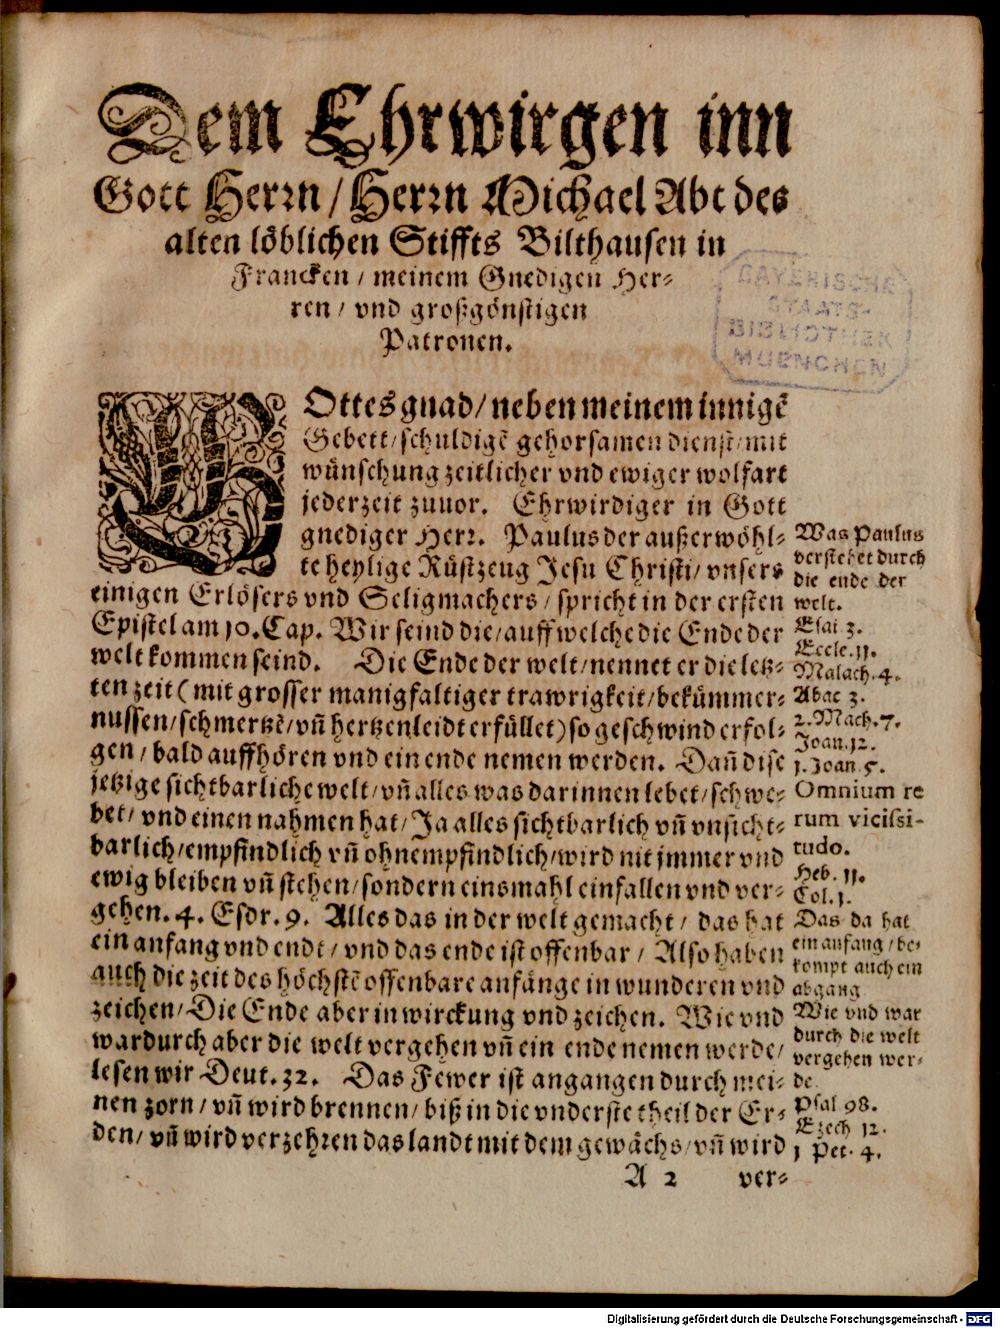 Dem Ehrwirgen inn
Gott Herrn / Herrn Michael Abt des
alten löblichen Stiffts Bilthausen in
Francken / meinem Gnedigen Her⸗
ren / vnd großgönstigen
Patronen.
BAYERISCHE
STAATS-
BIBLIOTHEK
MUENCHEN
GOttes gnad / neben meinem innigẽ
Gebett / schuldigẽ gehorsamen dienst / mit
wünschung zeitlicher vnd ewiger wolfart
jederzeit zuuor. Ehrwirdiger in Gott
gnediger Herr. Paulus der außerwöhl⸗
te heylige Rüstzeug Jesu Christi / vnsers
einigen Erlösers vnd Seligmachers / spricht in der ersten
Epistel am 10. Cap. Wir seind die / auff welche die Ende der
welt kommen seind. Die Ende der welt / nennet er die letz⸗
ten zeit ( mit grosser manigfaltiger trawrigkeit / bekümmer⸗
nussen / schmertzẽ / vñ hertzenleidt erfüllet ) so geschwind erfol⸗
gen / bald auffhören vnd ein ende nemen werden. Dañ dise
jetzige sichtbarliche welt / vñ alles was darinnen lebet / schwe⸗
bet / vnd einen nahmen hat / Ja alles sichtbarlich vñ vnsicht⸗
barlich / empfindlich vñ ohnempfindlich / wird nit jmmer vnd
ewig bleiben vñ stehen / sondern einsmahl einfallen vnd ver⸗
gehen. 4. Esdr. 9. Alles das in der welt gemacht / das hat
ein anfang vnd endt / vnd das ende ist offenbar / Also haben
auch die zeit des höchstẽ offenbare anfänge in wunderen vnd
zeichen / Die Ende aber in wirckung vnd zeichen. Wie vnd
wardurch aber die welt vergehen vñ ein ende nemen werde /
lesen wir Deut. 32. Das Fewer ist angangen durch mei⸗
nen zorn / vñ wird brennen / biß in die vnderste theil der Er⸗
den / vñ wird verzehren das landt mit dem gewächs / vñ wird
A 2 ver⸗
Was Paulus
verstehet durch
die ende der
welt.
Esai 3.
Eccle. 11.
Malach. 4.
Abac 3.
2. Mach. 7.
Joan. 12.
1. Joan 5.
Omnium re
rum vicissi-
tudo.
Heb. 11.
Col. 1.
Das da hat
ein anfang / be⸗
kompt auch ein
abgang
Wie vnd war
durch die welt
vergehen wer⸗
de
Psal 98.
Ezech 12.
1 Pet. 4.
Digitalisierung gefördert durch die Deutsche Forschungsgemeinschaft - DFG